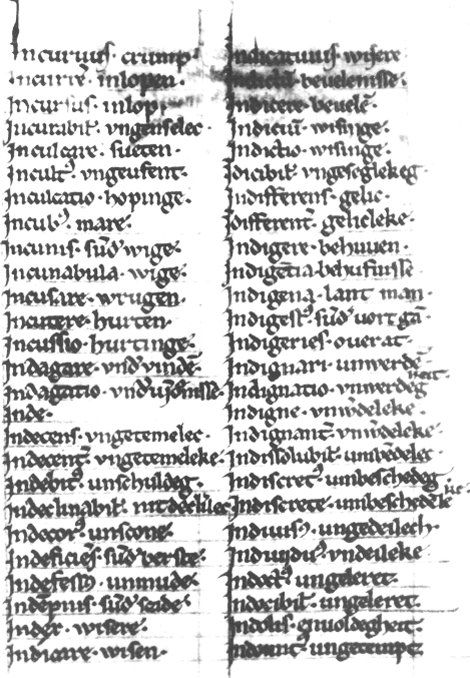 Incuruus. crump.
Incurrere. inlopen.
Incursus. inlop.
Incurabil'. vngenselec.
Inculcare. sueten.
Incult'. vngeufent.
Inculcatio. hopinge.
Incub'. mare.
Incunis. sūd' wige.
Incunabula. wige.
Incusare. wrugen.
Incutere. hurten.
Incussio. hurtinge.
Indagare. vnd'vindē.
Indagatio.
Inde.
Indecens. vngetemelec.
Indecent'. vngetemeleke.
Indebit'. unschuldeg.
Indeclinabil'.
Indecor'. unscone.
Indeficiēs. sūd' verste.
Indefess'. unmude.
Indēpnis. sūd' scide
Index. wisere.
Indicare. wisen.
Indicatiuus wisere
beuelenisse.
Indicere. beuelē.
Indiciū. wisinge.
Indictio. wisinge.
Idicibil'. vngesegleke
Indifferens. gelic.
Idifferent'. gelicleke.
Indigere. behuuen.
Indigētia. behufnisse
Indigena. lant man.
Indigest'. sūd'
Indigeries. ouer at.
Indignari. unwerdē
Indignatio. vnwerdeg heit.
Indigne. vnw'deleke.
Indignant'. vnw'deleke.
Indissolubil'.
Indiscret'. umbeschedeg
Indiscrete. umbeschedeleke
Indiuis'. ungedeilech.
Indiuidu'. vndeileke
Indoct'. ungeleret.
Indocibil'. ungeleret.
Indolis. envoldegheit.
Indomit'. ungetempt.